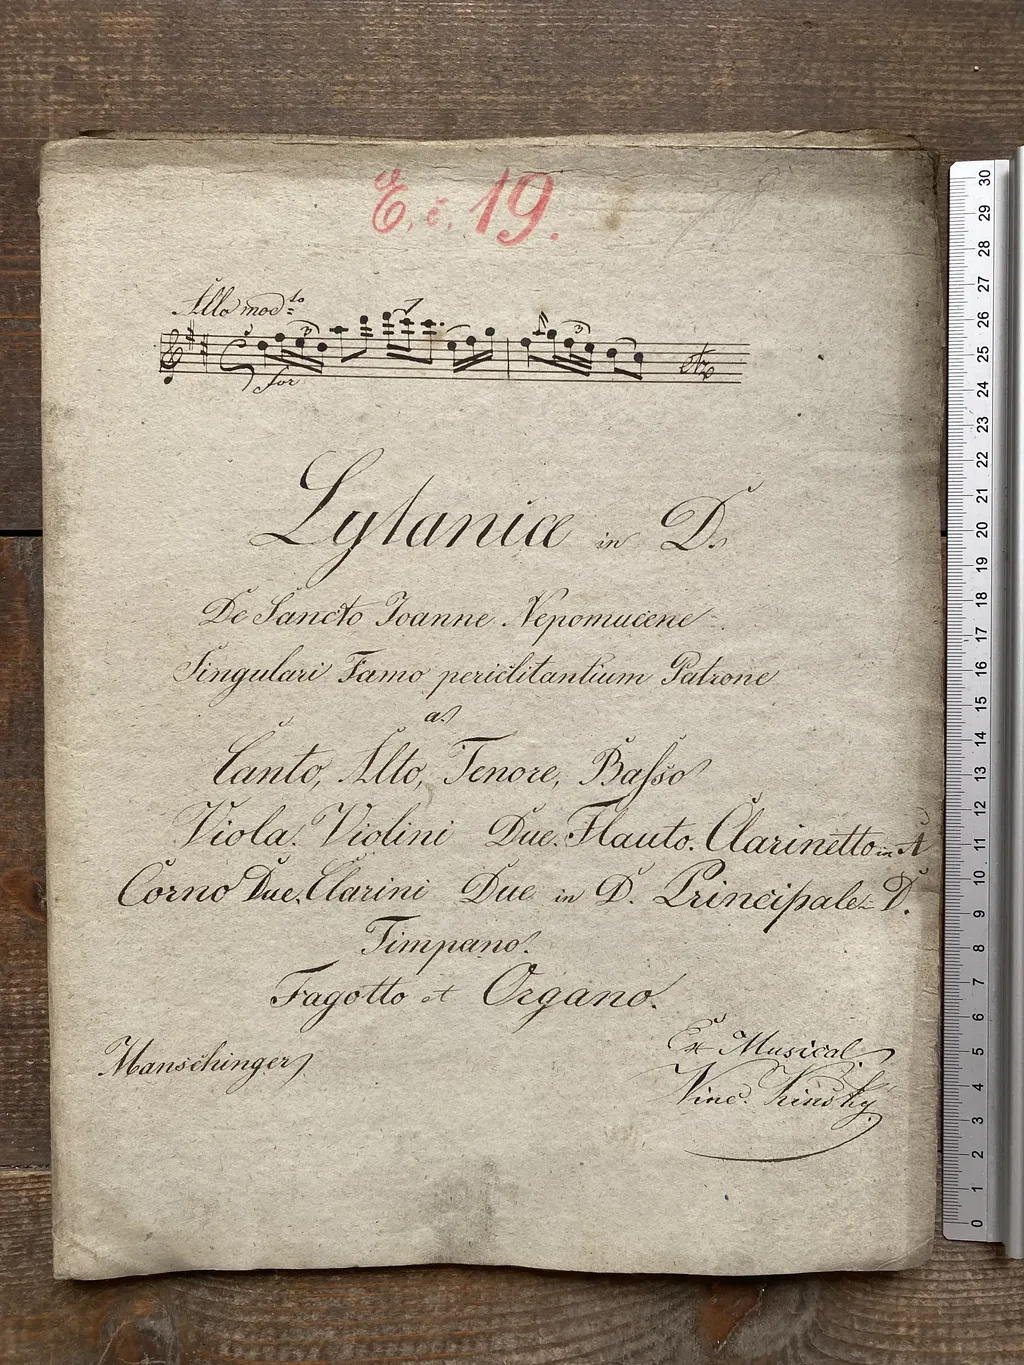 E. č. 19.
Allo modto
3
for
3
etc
Lytaniæ in D.
De Sancto Joanne Nepomucene
Singulari Famo periclitantium Patrone
a
Canto, Alto, Tenore, Basso
Viola. Violini Due. Flauto. Clarinetto in A
Corno Due. Clarini Due in D. Principale in D.
Timpano.
Fagotto et Organo.
Manschinger
Ex Musical.
Vinc. Kinsky
30
29
28
27
26
25
24
23
22
21
20
19
18
17
16
15
14
13
12
11
10
9
8
7
6
5
4
3
2
1
0